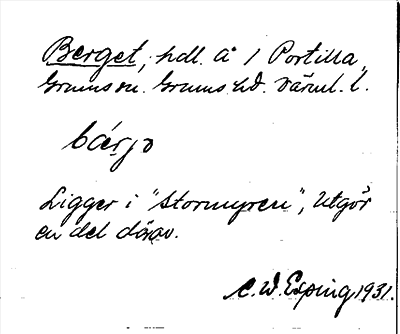 Berget, hdl. å 1 Portilla,
Grums sn. Grums hd. Värml. l.
bárjo
Ligger i "Stormyren", Utgör
en del därav.
C. W. Esping 1931.